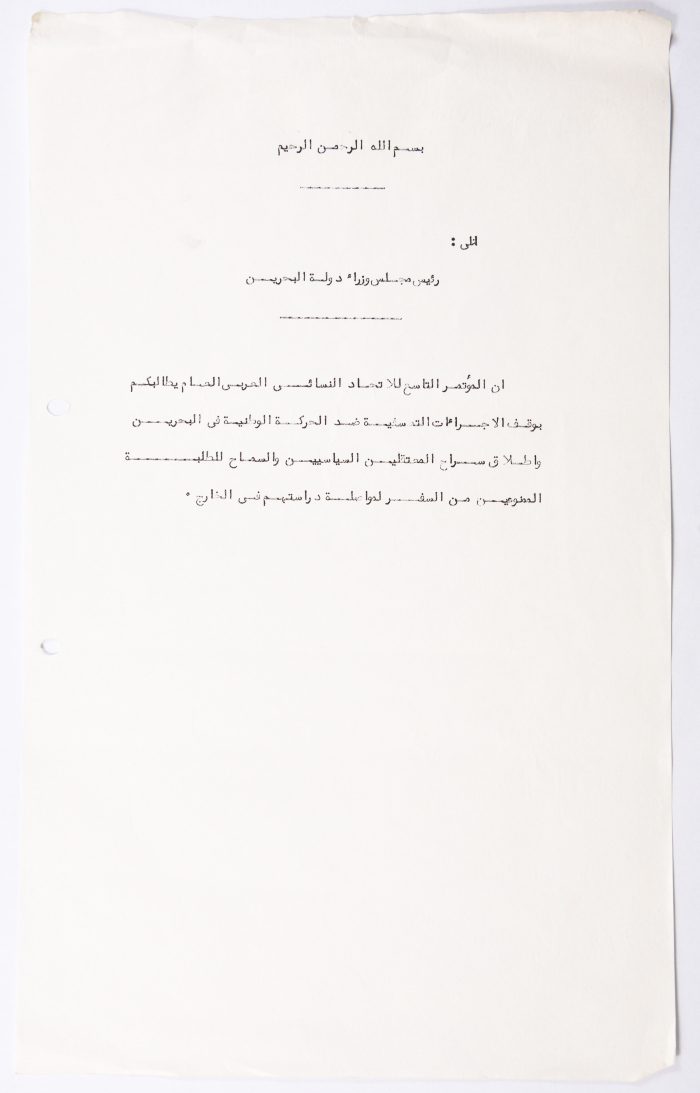 بسم الله الرحمن الرحيم
الى :
رئيس مجلس وزراء دولة البحرين
ان المؤتمر التاسع للاتحاد النسائي العربي العام يطالبكم
بوقف الاجراءات التعسفية ضد الحركة الوطنية في البحرين
واطلاق سراح المعتقلين السياسيين والسماح للطلبة
الممنوعين من السفر لمواصلة دراستهم في الخارج .